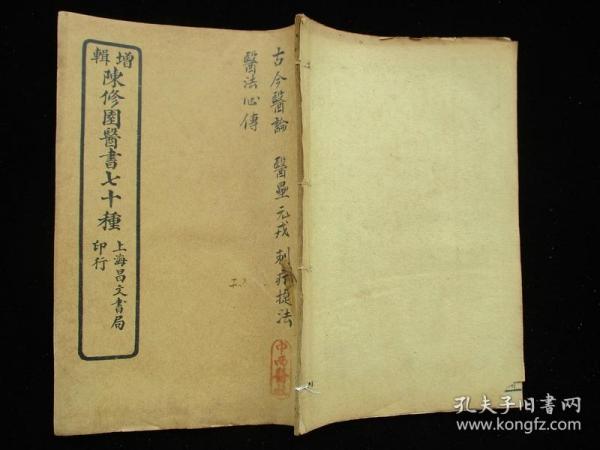 增輯
陳修園醫書七十種
上海昌文書局
印行
古今醫論 醫壘元戎 刺疔捷法
醫法心傳
中西醫
孔夫子旧书网
www.kongfz.com